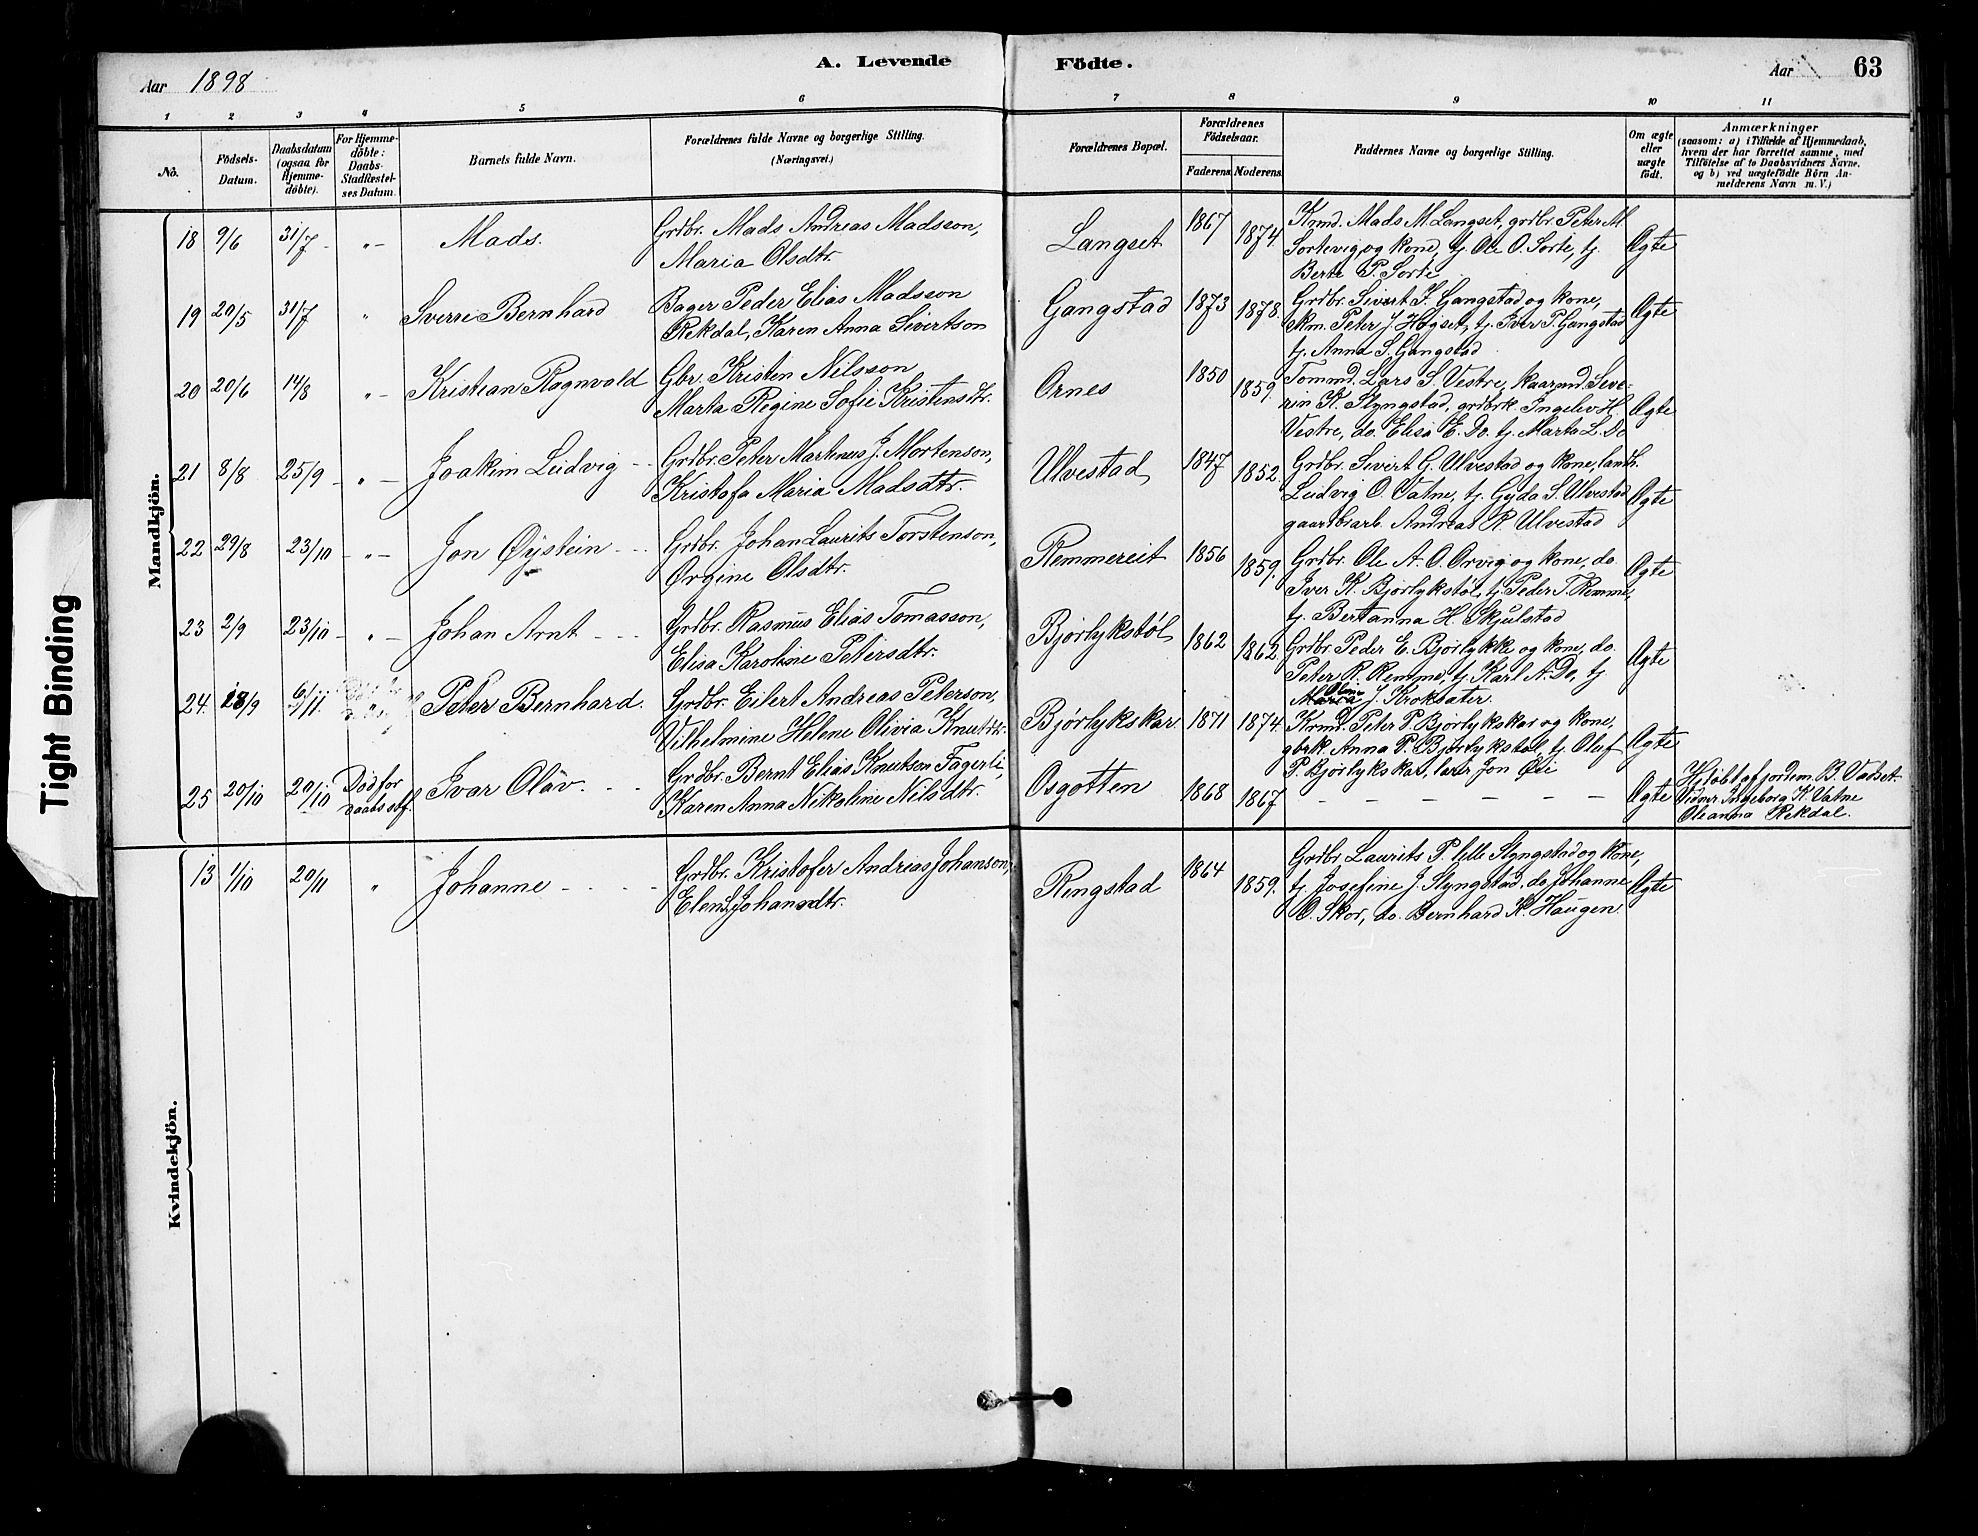 Tight Binding
Aar 1898
A. Levende Födte.
Aar 63
1 2 3 4 5 6 7 8 9 10 11
No.
Födsels-Datum.
Daabsdatum (ogsaa for Hjemme-döbte).
For Hjemme-döbte: Daabs-Stadfæstel-ses Datum.
Barnets fulde Navn.
Forældrenes fulde Navne og borgerlige Stilling.
(Næringsvei.)
Forældrenes Bopæl.
Forældrenes Födselsaar.
Faderens Moderens
Faddernes Navne og borgerlige Stilling.
Om ægte eller uægte födt.
Anmærkninger
(saasom: a) i Tilfælde af Hjemmedaab,
hvem der har forrettet samme, med
Tilföielse af to Daabsvidners Navne,
og b) ved uægtefödte Börn An-
melderens Navn m. V.)
Mandkjön.
18 9/6 31/7 - „ - Mads. Grdbr. Mads Andreas Madsson,
Maria Olsdtr.
Langset 1867 1874. Krmd. Mads M. Langset, grdbr. Peter M.
Sortevig og kone, tj. Ole O. Sorte, tj.
Berte P. Sorte
Ægte
19 20/5 31/7 „ Sverre Bernhard Bager Peder Elias Madsson
Rekdal, Karen Anna Sivertson
Gangstad 1873 1878. Grdbr. Sivert S. Gangstad og kone,
skm. Peter J. Högset, tj. Iver P. Gangstad
tj. Anna S. Gangstad
Ægte
20 20/6 14/8 „ - Kristian Ragnvald Gbr. Kristen Nilsson
Marta Regine Sofie Kristensdtr.
Ornes 1850 1859. Tommd. Lars S. Vestre, kaarmd. Seve-
rin K. Slyngstad, grdbrk. Ingelev H.
Vestre, do. Elisa E. Do. tj. Marta L. Do
Ægte
21 8/8 25/9 - „ - Joakim Ludvig - - Grdbr. Peter Martinus J. Mortenson,
Kristofa Maria Madsdtr.
Ulvestad 1847 1852. Grdbr. Sivert G. Ulvestad og kone, landh.
Ludvig O. Vatne, tj. Gyda S. Ulvestad
gaardbrarb. Andreas R. Ulvestad
Ægte
22 29/8 23/10 - „ - Jon Øystein - - - Grdbr. Johan Laurits Torstenson,
Ørgine Olsdtr.
Remmereit 1856 1859. Grdbr. Ole A. O. Orvig og kone, do.
Iver K. Bjørlykstøl, tj. Peder T. Remme,
tj. Bertanna H. Skjulstad
Ægte
23 2/9 23/10 - „ - Johan Arnt - - - Grdbr. Rasmus Elias Tomasson,
Elisa Karoline Petersdtr.
Bjørlykstøl 1862 1862 Grdbr. Peder E. Bjørlykke og kone, do.
Peter R. Remme, tj. Karl A. Do, tj.
Olina
Maria J. Kroksæter.
Ægte
24. 18/9 6/11 „ Peter Bernhard. Grdbr. Eilert Andreas Peterson,
Vilhelmine Helene Olivia Knutdtr.
Bjørlykskar 1871 1874. Krmd. Peter P. Bjørlykskar og kone,
gbrk. Anna P. Bjørlykstøl, tj. Oluf
P. Bjørlykskar, lærer Jon Øie
Ægte
25 20/10 20/10 Död för daabs stf. Ivar Olav. - - Grdbr. Bernt Elias Knutsen Fagerli,
Karen Anna Nikoline Nilsdtr.
Osgotten 1868 1867 - - - - - - Ægte
Hj.döbt af jordem. B. Vadset.
Vidner Ingeborg K. Vatne
Oleanna Rekdal.
Kvindekjön.
13 1/10 20/11 „ Johanne - - - - Grdbr. Kristofer Andreas Johanson,
Elen S. Johansdtr.
Ringstad 1864 1859. Grdbr. Laurits P. lille Slyngstad og kone,
tj. Josefine J. Slyngstad, do Johanne
O. Skor, do. Bernhard K. Haugen.
Ægte